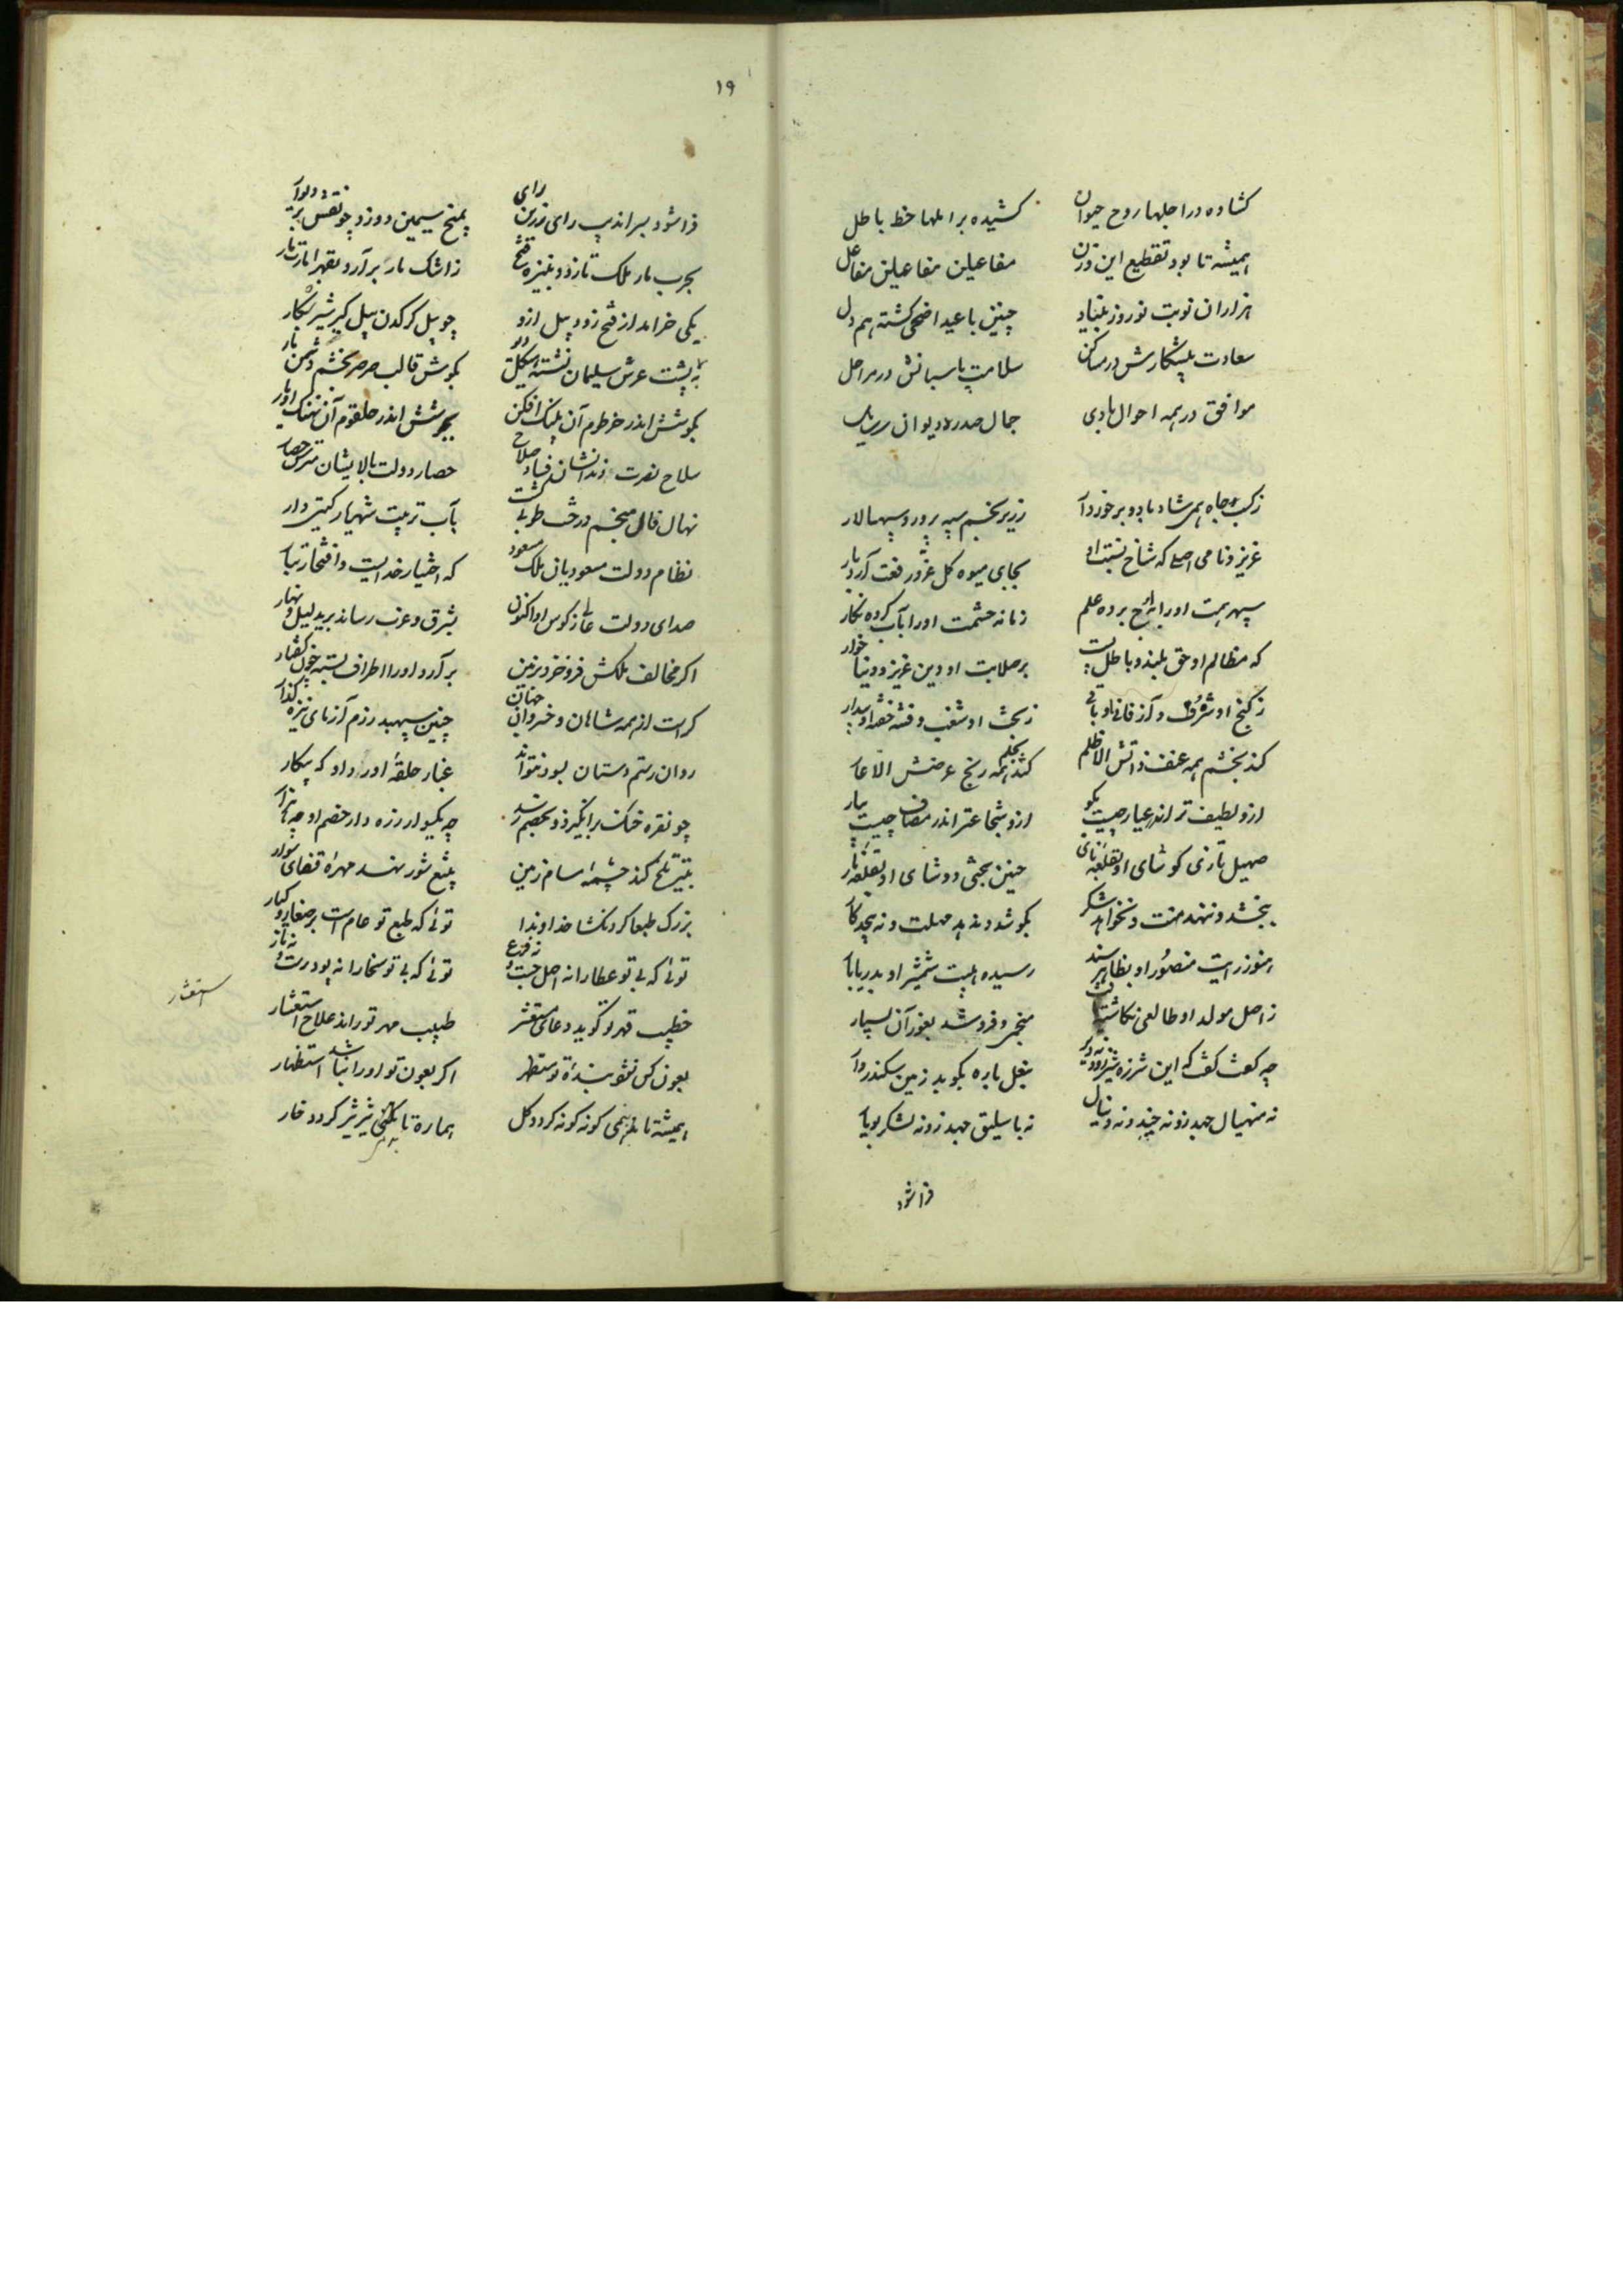 کشاده در اجلها روح حیوان
کشیده بر املها خط باطل
همیشه تا بود تقطیع این وزن
مفاعیلن مفاعیلن مفاعل
هزاران نوبت نوروز بیناد
چنین با عید اضحی کشته هم دل
سعادت پیشکارش در مساکن
سلامت پاسبانش در مراحل
موافق در همه احوال هادی
جمال صدر دیوان
ز کسب جاه همی شاد باد و برخوردار
زریر بخشم سپه پرور و سپهسالار
عزیز و نامی اصلی که شاخ نسبت او
بجای میوه کل عز و رفعت آرد بار
سپهر همت او را برخ برده علم
زمانه حشمت او را بآب کرده نکار
که مظالم او حق بلند و باطل پست
بر صلابت او دین عزیز و دنیا خوار
ز کنج او شرف و آز فانی او باقی
ز بخت او شغب و فتنه خفته او بیدار
کند بخشم همه عنف ذاتش الا ظلم
کشد بحلم همه رنج عرضش الا عار
ازو لطیف تر اندر عیار چیست بکو
ازو شجاعتر اندر مصاف چیست بیار
صهیل تازی کوشای او بقلعه نای
حنین بختی دوشای او بقلعه نار
ببخشد و ننهد منت و نخواهد شکر
بکوشد و ندهد مهلت و نه پیچد کار
هنوز رایت منصور او
رسیده هیبت شمشیر او بدریابار
ز اصل مولد او طالعی نکاشت
منجم و فرو شد بغور آن بسیار
چه کفت کفت که این شرزه شیر
بنعل باره بکوبد زمین سکندروار
نه منهیال جهد زو نه چند و نه دنیال
نه باسلیق جهد زو نه لشکر بویار
فراشود
۱۹
فراشود بسراندیب رای زرین رای
بمیخ سیمین دوزد چو نقش بر دیوار
بحرب مار ملک تازد و بنیزه فتح
ز اشک مار برآرد بقهر
یکی خرامد از فتح زود پیل ازو
چو پیل کرکدن پیل کیر شیر شکار
به پشت عرش سلیمان نشسته
بکوش قالب صرصر بخشم دشمن
بکوشش اندر خرطوم آن پلنک افکن
بجوشش اندر حلقوم آن نهنک اوبار
سلاح نصرت دندانشان
حصار دولت بالایشان
نهال فال منجم درخت طوبی کشت
بآب تربیت شهریار کیتی دار
نظام دولت مسعودیان ملک مسعود
که اختیار خدایست و افتخار تبار
صدای دولت عالی ز کوس او اکنون
بشرق و غرب رساند برید لیل و نهار
اکر مخالف ملکش فرو خزد بزمین
برآرد او را اطراف بسته چون کفتار
کراست از همه شاهان و خسروان جهان
چنین سپهبد رزم آزمای نیزه کذار
روان رستم دستان بود نتواند
غبار حلقه او را داد که پیکار
چو نقره خنک برانکیزد و بخصم رسد
چه یکسوار زره دار خصم او چه هزار
بتیر تلخ کند چشمه سام زمین
بتیغ شور نهد مهره قفای سوار
بزرک طبعا کردنکشا خداوندا
توئی که طبع تو عام است بر صغار و کبار
توئی که بی تو عطا را نه اصل جست و نه فرع
توئی که بی تو سخا را نه پود رست و نه تار
خطیب قهر تو کوید دعای مستعشر
طبیب مهر تو راند علاج استعشار
بعون کس نشود بنده تو مستظهر
اکر بعون تو او را نباشد استظهار
همیشه تا بهمی کونه کونه کردد کل
هماره تا شیر شیر کردد خار
استعشار